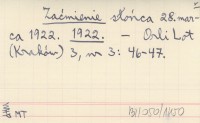 Zaćmienie słońca 28. mar-
ca 1922. 1922. – Orli Lot
(Kraków) 3, nr 3: 46-47.
MT